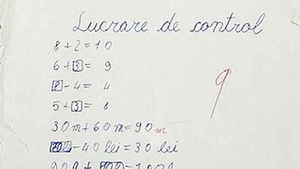 Lucrare de control
8 + 2 = 10
6 + 3 = 9
9
8 - 4 = 4
5 + 3 = 8
30 m + 60 m = 90 m
- 40 lei = 30 lei